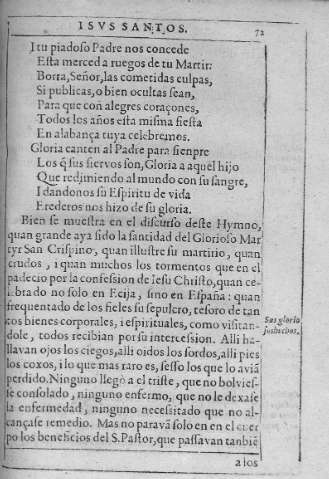 I SVS SANTOS.
72
I tu piadoso Padre nos concede
Esta merced a ruegos de tu Martir:
Borra, Señor, las cometidas culpas,
Si publicas, o bien ocultas sean,
Para que con alegres coraçones,
Todos los años esta misma fiesta
En alabãça tuya celebremos.
Gloria canten al Padre para sienpre
Los q̃ sus siervos son, Gloria a aquel hijo
Que redimiendo al mundo con su sangre,
I dandonos su Espiritu de vida
Erederos nos hizo de su gloria.
Bien se muestra en el discurso deste Hymno,
quan grande aya sido la santidad del Glorioso Mar
tyr San Crispino, quan illustre su martirio, quan
crudos, i quan muchos los tormentos que en el
padecio por la confession de Iesu Christo, quan ce-
lebrado no solo en Ecija, sino en España: quan
frequentado de los fieles su sepulcro, tesoro de tan
tos bienes corporales, i espirituales, como visitan-
dole, todos recibian por su intercession. Alli ha-
llavan ojos los ciegos, alli oidos los sordos, alli pies
los coxos, i lo que mas raro es, sesso los que lo aviã
perdido. Ninguno llegò a el triste, que no bolvies-
se consolado, ninguno enfermo, que no le dexasse
la enfermedad, ninguno necessitado que no al-
cançase remedio. Mas no paravã solo en en el cuer
po los beneficios del S. Pastor, que passavan tanbiẽ
Sus glorio
sos hechos.
a los